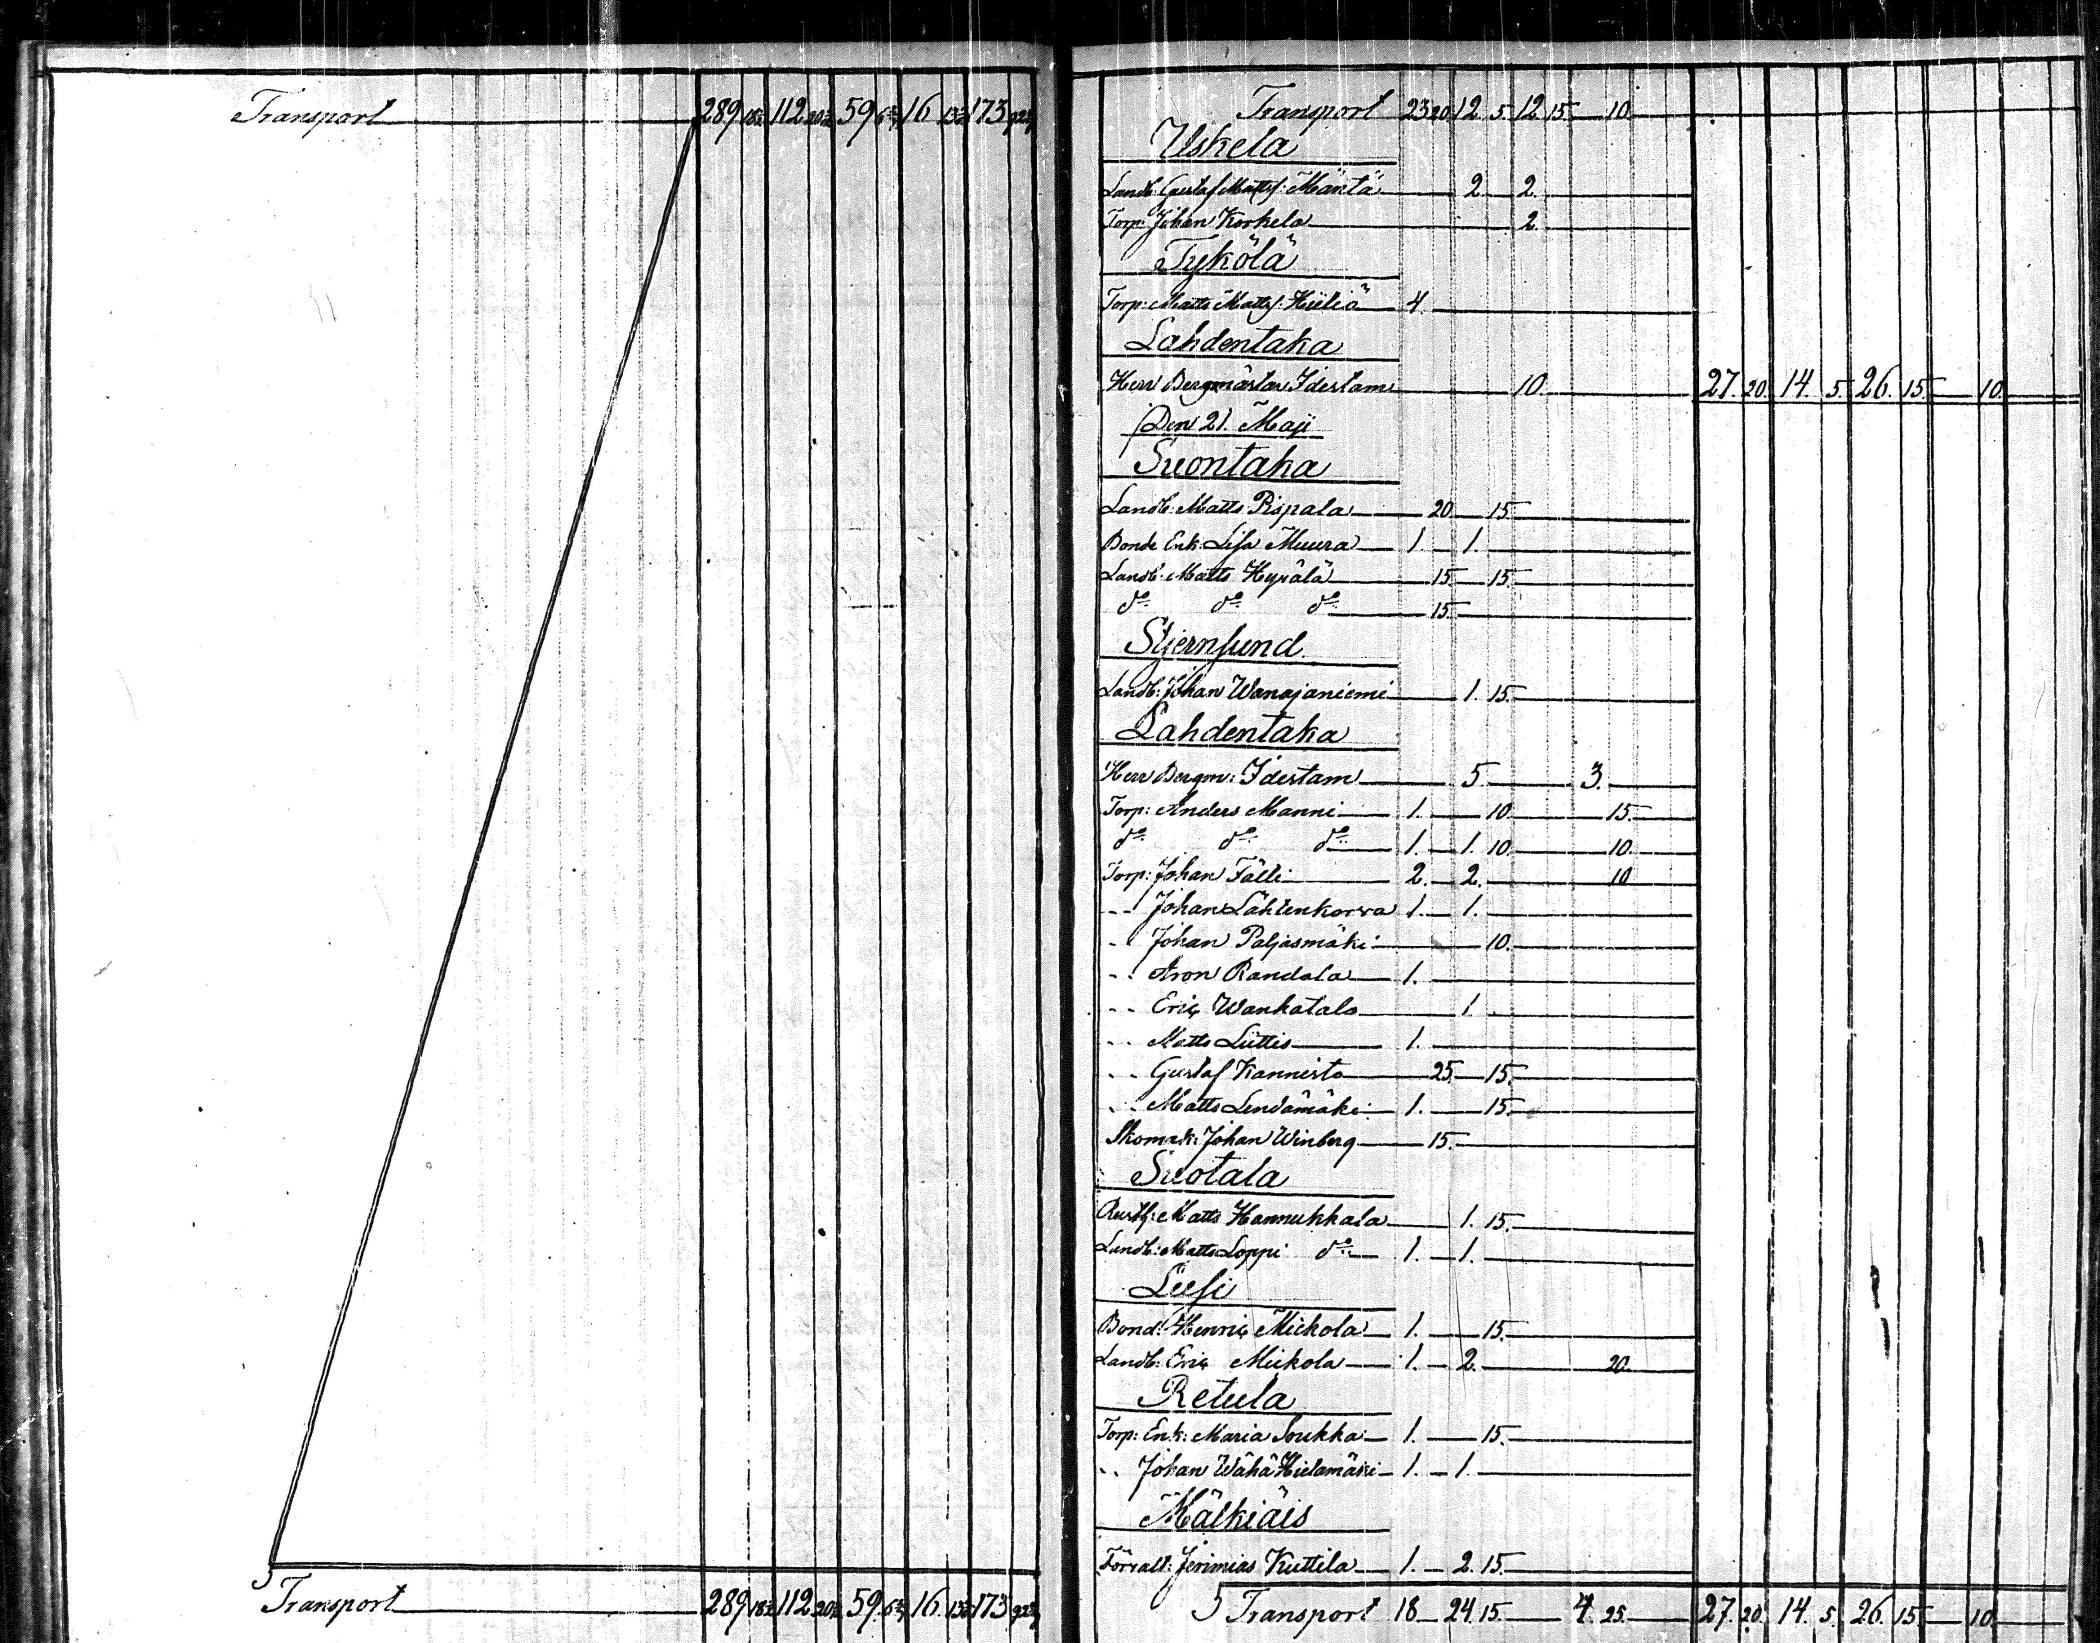 Transport 289 112 59 16 173
Transport 289 112 59 16 173
Transport 23 20 12 5 12 15 — 10
Uskela
Landb: Gustaf Mattss: Mäntä — 2 — 2
Torp: Johan Korkela — 2
Tykölä
Torp: Matts Mattss: Hüliä 4 —
Lahdentaka
Herr Bergmästar Idestam — 10. — 27. 20. 14. 5. 26. 15. — 10.
Den 21. Maji
Suontaka
Landb: Matts Pispala — 20 — 15 —
Bonde Enk: Lisa Muura — 1. — 1. —
Landb: Matts Hyrälä — 15 — 15. —
do do do — 15. —
Stjernsund
Landb: Johan Wanajaniemi — 1. 15. —
Lahdentaka
Herr Bergm: Idestam — 5. — 3. —
Torp: Anders Manni — 1. — 10. — 15. —
do do do — 1. — 1. 10. — 10. —
Torp: Johan Tälli — 2. — 2. — 10
- - Johan Lähtenkorva 1. — 1. —
- - Johan Paljasmäki — 10. —
- - Aron Randala — 1. —
- - Eric Wankatalo — 1. —
- - Matts Liittis — 1. —
- - Gustaf Kannisto — 25. — 15. —
- - Matts Lendämäki — 1. — 15. —
Skomak: Johan Winberg — 15. —
Suotala
Rusth: Matts Hannukkala — 1. 15. —
Landb: Matts Loppi do — 1. — 1. —
Lusi
Bond: Henric Mickola — 1. — 15. —
Landb: Eric Mickola — 1. — 2. — 20.
Retula
Torp: Enk: Maria Soukka — 1. — 15. —
- - Johan Wähä Hielamäki — 1. — 1. —
Mälkiäis
Förvalt: Jerimias Kuttila — 1. — 2. 15. —
Transport 18 — 24. 15. — 4. 25. — 27. 20. 14. 5. 26. 15. — 10.